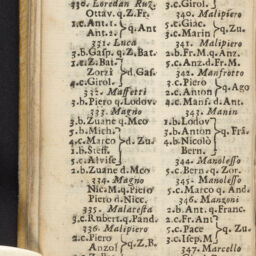 330. Loredan Ruz.
Ottav. q.Z.Fr.
1.c.Ant.1. q.Ant
Ant.2.
331. Luca
3.b.Gasp. q.Z.Bat.
1.c.Z.Bat. d.Gas.
Zorzi
4.c.Girol.
332. Maffetti
3.b.Piero q.Lodov.
333. Magno
3.b.Zuane q.Mco
5.b.Mich.
4.c.Marco d. Zu.
1.b.Steff.
5.c.Alvise
2.b.Zuane d.Mco
334. Magno
Nic.M.q.Pieio
Piero d.Nicc.
335. Malaresta
3.c.Rubert.q.Pand.
336. Malipiero
2.c.Piero q.Z.B.
Anzol
3.c.Girol.
340. Malipiero
5.c.Giac. q. Zu.
3.c.Marin
341. Malipiero
2.b.Fr.M.q.Anz.
5.c.Anz.d.Fr.M.
342. Manfrotto
3.c.Piero q.Ago
2.c.Anton
4.c.Manf. d.Ant.
343. Manin
1.b.Lodov.
3.b.Anton q. Frã.
4.b.Nicolò
Bern.
344. Manolesso
5.c.Bern.q.Zor.
345. Manolesso
5.c.Marco q. And.
346. Manzoni
2.b.Ant. q.Franc.
2.c.Fr.Ant
5.c.Pace q. Zu.
3.c.Isep.M
347. Marcello